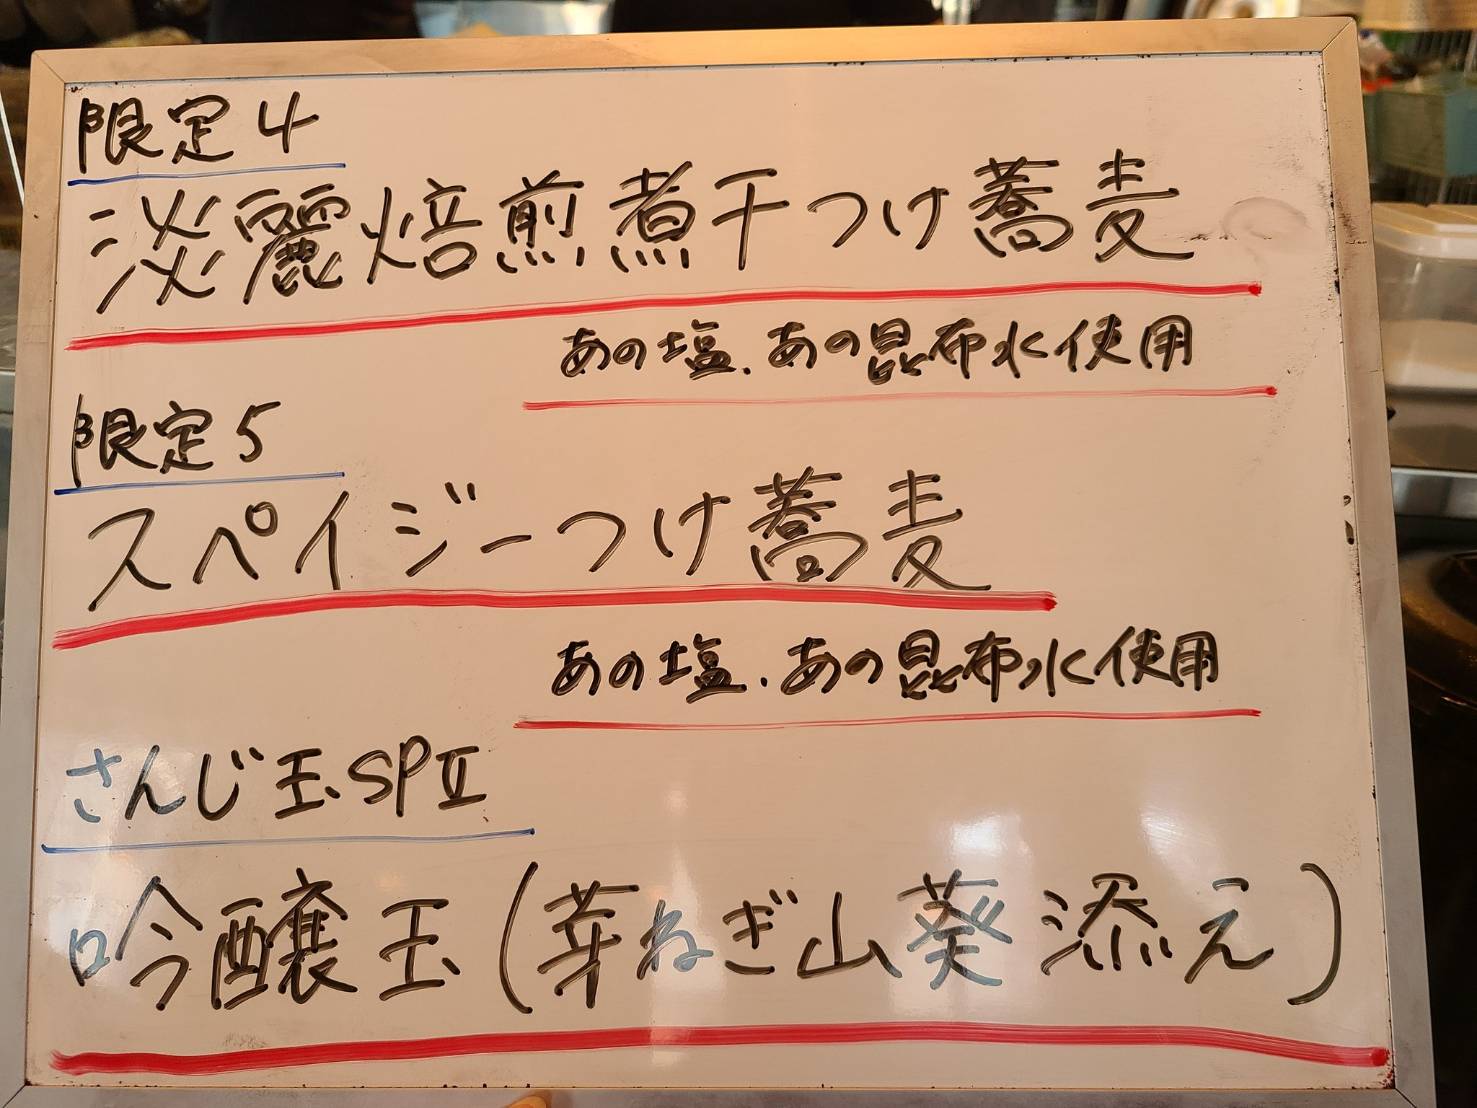 限定4
淡麗焙煎煮干つけ蕎麦
あの塩、あの昆布水使用
限定5
スペイジーつけ蕎麦
あの塩、あの昆布水使用
さんじ玉SPⅡ
吟醸玉(芽ねぎ山葵添え)